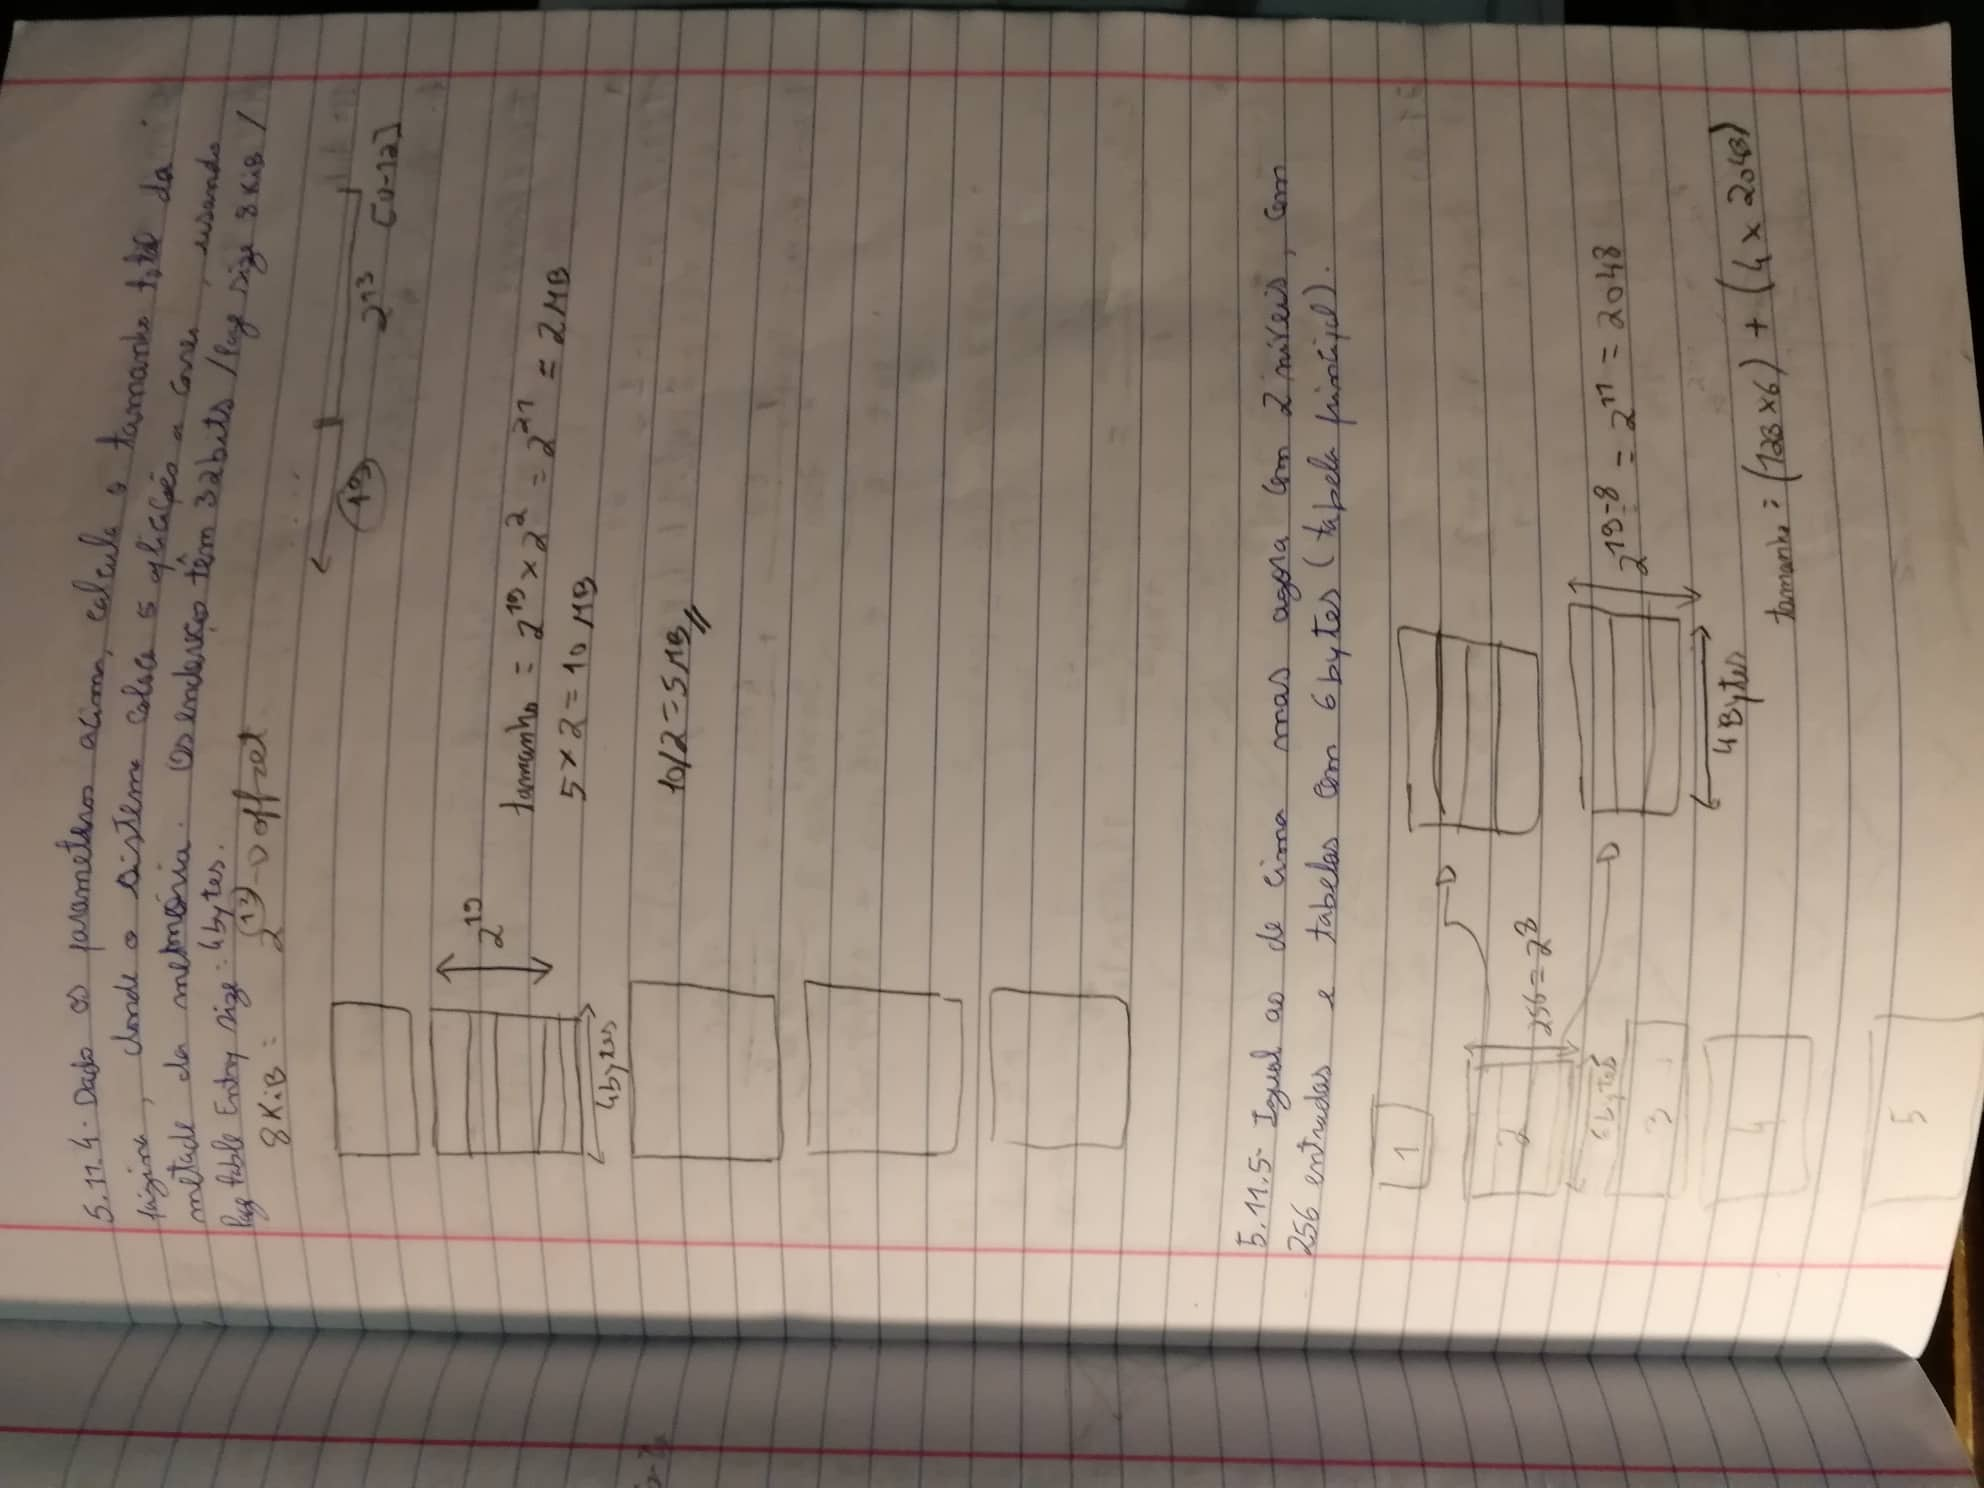 5.11.4- Dado os parametros acima, calcula o tamanho total da
página, donde o sistema coloca 5 aplicações a correr, usando
metade da memória. Os endereço têm 32bits / Page size 8KiB /
Page table Entry size: 4bytes.
8KiB: 2^13 -> offset
19 2^13 [0-12]
2^19
tamanho = 2^19 x 2^2 = 2^21 = 2MB
5 x 2 = 10 MB
4bytes
10/2 = 5MB //
5.11.5- Igual ao de cima mas agora com 2 níveis, com
256 entradas e tabelas com 6bytes (tabela principal).
1
2
256 = 2^8
6bytes
3
2^19-8 = 2^11 = 2048
4
4Bytes
tamanho = (128x6) + (4 x 2048)
5